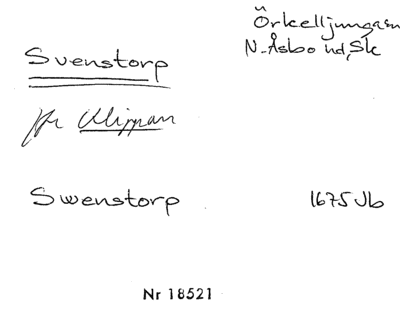 Örkelljungasn
N.Åsbo hd, Sk
Svenstorp
jfr Klippan
Swenstorp 1675 Jb
Nr 18521